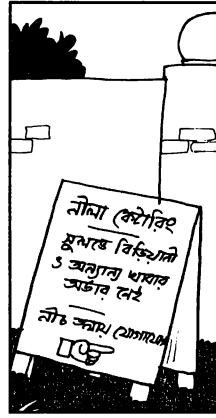 নীলা কেটারিং
সুলভে বিরিয়ানী
ও অন্যান্য খাবার
অর্ডার নেই
নীচ তলায় যোগাযোগ